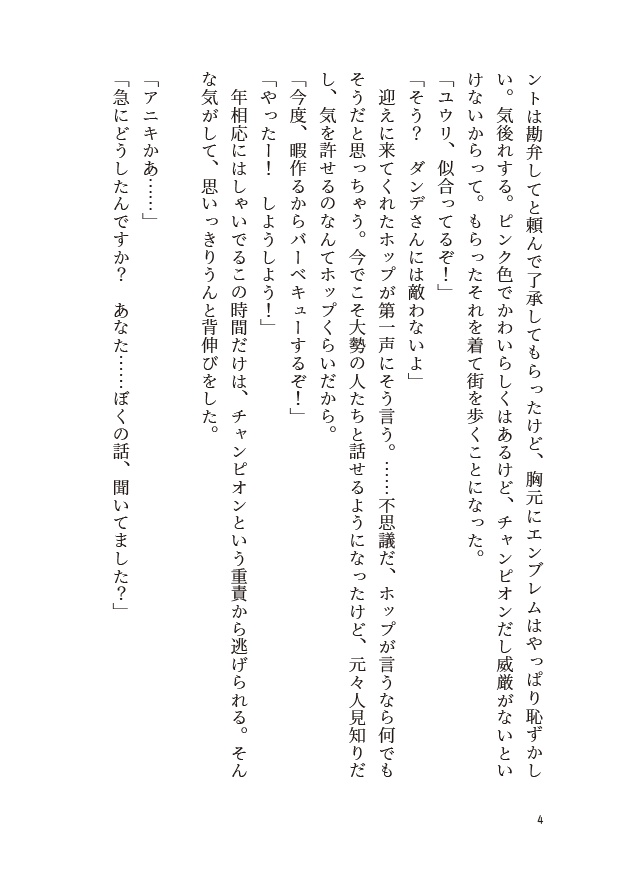 ントは勘弁してと頼んで了承してもらったけど、胸元にエンブレムはやっぱり恥ずかし
い。気後れする。ピンク色でかわいらしくはあるけど、チャンピオンだし威厳がないとい
けないからって。もらったそれを着て街を歩くことになった。
「ユウリ、似合ってるぞ！」
「そう？　ダンデさんには敵わないよ」
　迎えに来てくれたホップが第一声にそう言う。……不思議だ、ホップが言うなら何でも
そうだと思っちゃう。今でこそ大勢の人たちと話せるようになったけど、元々人見知りだ
し、気を許せるのなんてホップくらいだから。
「今度、暇作るからバーベキューするぞ！」
「やったー！　しようしよう！」
　年相応にはしゃいでるこの時間だけは、チャンピオンという重責から逃げられる。そん
な気がして、思いっきりうんと背伸びをした。
「アニキかあ……」
「急にどうしたんですか？　あなた……ぼくの話、聞いてました？」
4